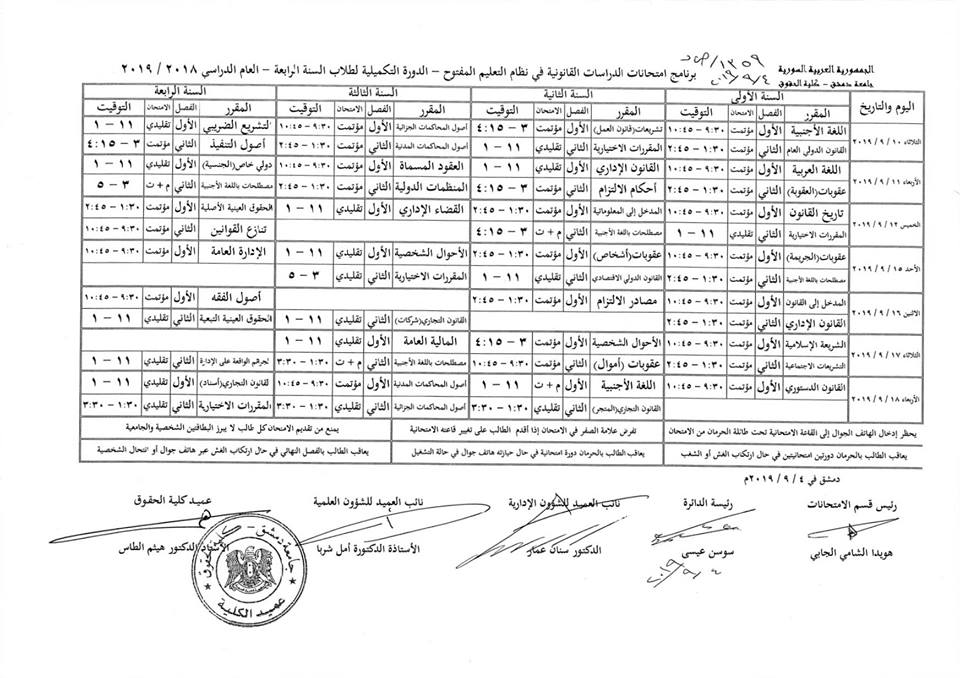 ١٣٥٩/ص د
٢٠١٩/٩/٤
الجمهورية العربية السورية
جامعة دمشق - كلية الحقوق
برنامج امتحانات الدراسات القانونية في نظام التعليم المفتوح - الدورة التكميلية لطلاب السنة الرابعة - العام الدراسي ٢٠١٨ / ٢٠١٩
اليوم والتاريخ السنة الأولى السنة الثانية السنة الثالثة السنة الرابعة
المقرر الفصل الامتحان التوقيت المقرر الفصل الامتحان التوقيت المقرر الفصل الامتحان التوقيت المقرر الفصل الامتحان التوقيت
الثلاثاء ١٠ / ٩ / ٢٠١٩
اللغة الأجنبية الأول مؤتمت ٩:٣٠ - ١٠:٤٥ تشريعات(قانون العمل) الأول مؤتمت ٣ - ٤:١٥ أصول المحاكمات الجزائية الأول مؤتمت ٩:٣٠ - ١٠:٤٥ التشريع الضريبي الأول تقليدي ١١ - ١
القانون الدولي العام الثاني مؤتمت ١:٣٠ - ٢:٤٥ المقررات الاختيارية الثاني تقليدي ١١ - ١ أصول المحاكمات المدنية الثاني مؤتمت ١:٣٠ - ٢:٤٥ أصول التنفيذ الثاني مؤتمت ٣ - ٤:١٥
الأربعاء ١١ / ٩ / ٢٠١٩
اللغة العربية الأول مؤتمت ٩:٣٠ - ١٠:٤٥ القانون الإداري الأول تقليدي ١١ - ١ العقود المسماة الأول تقليدي ١١ - ١ دولي خاص(الجنسية) الأول تقليدي ١١ - ١
عقوبات(العقوبة) الثاني مؤتمت ١:٣٠ - ٢:٤٥ أحكام الالتزام الثاني مؤتمت ٣ - ٤:١٥ المنظمات الدولية الثاني مؤتمت ١:٣٠ - ٢:٤٥ مصطلحات باللغة الأجنبية الثاني م + ت ٣ - ٥
الخميس ١٢ / ٩ / ٢٠١٩
تاريخ القانون الأول مؤتمت ٩:٣٠ - ١٠:٤٥ المدخل إلى المعلوماتية الأول مؤتمت ١:٣٠ - ٢:٤٥ القضاء الإداري الأول تقليدي ١١ - ١ الحقوق العينية الأصلية الأول مؤتمت ١:٣٠ - ٢:٤٥
المقررات الاختيارية الثاني تقليدي ١١ - ١ مصطلحات باللغة الأجنبية الثاني م + ت ٣ - ٤:١٥ تنازع القوانين الثاني مؤتمت ٩:٣٠ - ١٠:٤٥
الأحد ١٥ / ٩ / ٢٠١٩
عقوبات(الجريمة) الأول مؤتمت ٩:٣٠ - ١٠:٤٥ عقوبات(أشخاص) الأول مؤتمت ١:٣٠ - ٢:٤٥ الأحوال الشخصية الأول تقليدي ١١ - ١ الإدارة العامة الأول مؤتمت ٩:٣٠ - ١٠:٤٥
مصطلحات باللغة الأجنبية الثاني مؤتمت ١:٣٠ - ٢:٤٥ القانون الدولي الاقتصادي الثاني تقليدي ١١ - ١ المقررات الاختيارية الثاني تقليدي ٣ - ٥
الاثنين ١٦ / ٩ / ٢٠١٩
المدخل إلى القانون الأول مؤتمت ٩:٣٠ - ١٠:٤٥ مصادر الالتزام الأول مؤتمت ١:٣٠ - ٢:٤٥ أصول الفقه الأول مؤتمت ٩:٣٠ - ١٠:٤٥
القانون الإداري الثاني مؤتمت ١:٣٠ - ٢:٤٥ القانون التجاري(شركات) الثاني تقليدي ١١ - ١ الحقوق العينية التبعية الثاني تقليدي ١١ - ١
الثلاثاء ١٧ / ٩ / ٢٠١٩
الشريعة الإسلامية الأول مؤتمت ٩:٣٠ - ١٠:٤٥ الأحوال الشخصية الأول مؤتمت ٣ - ٤:١٥ المالية العامة الأول تقليدي ١١ - ١
التشريعات الاجتماعية الثاني مؤتمت ١:٣٠ - ٢:٤٥ عقوبات (أموال) الثاني مؤتمت ٩:٣٠ - ١٠:٤٥ مصطلحات باللغة الأجنبية الثاني م + ت ١:٣٠ - ٣:٣٠ الجرائم الواقعة على الإدارة الثاني تقليدي ١١ - ١
الأربعاء ١٨ / ٩ / ٢٠١٩
القانون الدستوري الأول مؤتمت ٩:٣٠ - ١٠:٤٥ اللغة الأجنبية الأول م + ت ١١ - ١ أصول المحاكمات المدنية الأول مؤتمت ٩:٣٠ - ١٠:٤٥ قانون التجاري(أسناد) الأول تقليدي ١١ - ١
القانون التجاري(المتجر) الثاني تقليدي ١:٣٠ - ٣:٣٠ أصول المحاكمات الجزائية الثاني تقليدي ١:٣٠ - ٣:٣٠ المقررات الاختيارية الثاني تقليدي ١:٣٠ - ٣:٣٠
يحظر إدخال الهاتف الجوال إلى القاعة الامتحانية تحت طائلة الحرمان من الامتحان تفرض علامة الصفر في الامتحان إذا أقدم الطالب على تغيير قاعته الامتحانية يمنع من تقديم الامتحان كل طالب لا يبرز البطاقتين الشخصية والجامعية
يعاقب الطالب بالحرمان دورتين امتحانيتين في حال ارتكاب الغش أو الشغب يعاقب الطالب بالحرمان دورة امتحانية في حال حيازته هاتف جوال في حالة التشغيل يعاقب الطالب بالفصل النهائي في حال ارتكاب الغش عبر هاتف جوال أو انتحال الشخصية
دمشق في ٤ / ٩ / ٢٠١٩م
رئيس قسم الامتحانات رئيسة الدائرة نائب العميد للشؤون الإدارية نائب العميد للشؤون العلمية عميد كلية الحقوق
هويدا الشامي الجابي سوسن عيسى الدكتور سنان عمار الأستاذة الدكتورة أمل شربا الأستاذ الدكتور هيثم الطاس
٢٠١٩/٩/٤
جامعة دمشق - كلية الحقوق
عميد الكلية